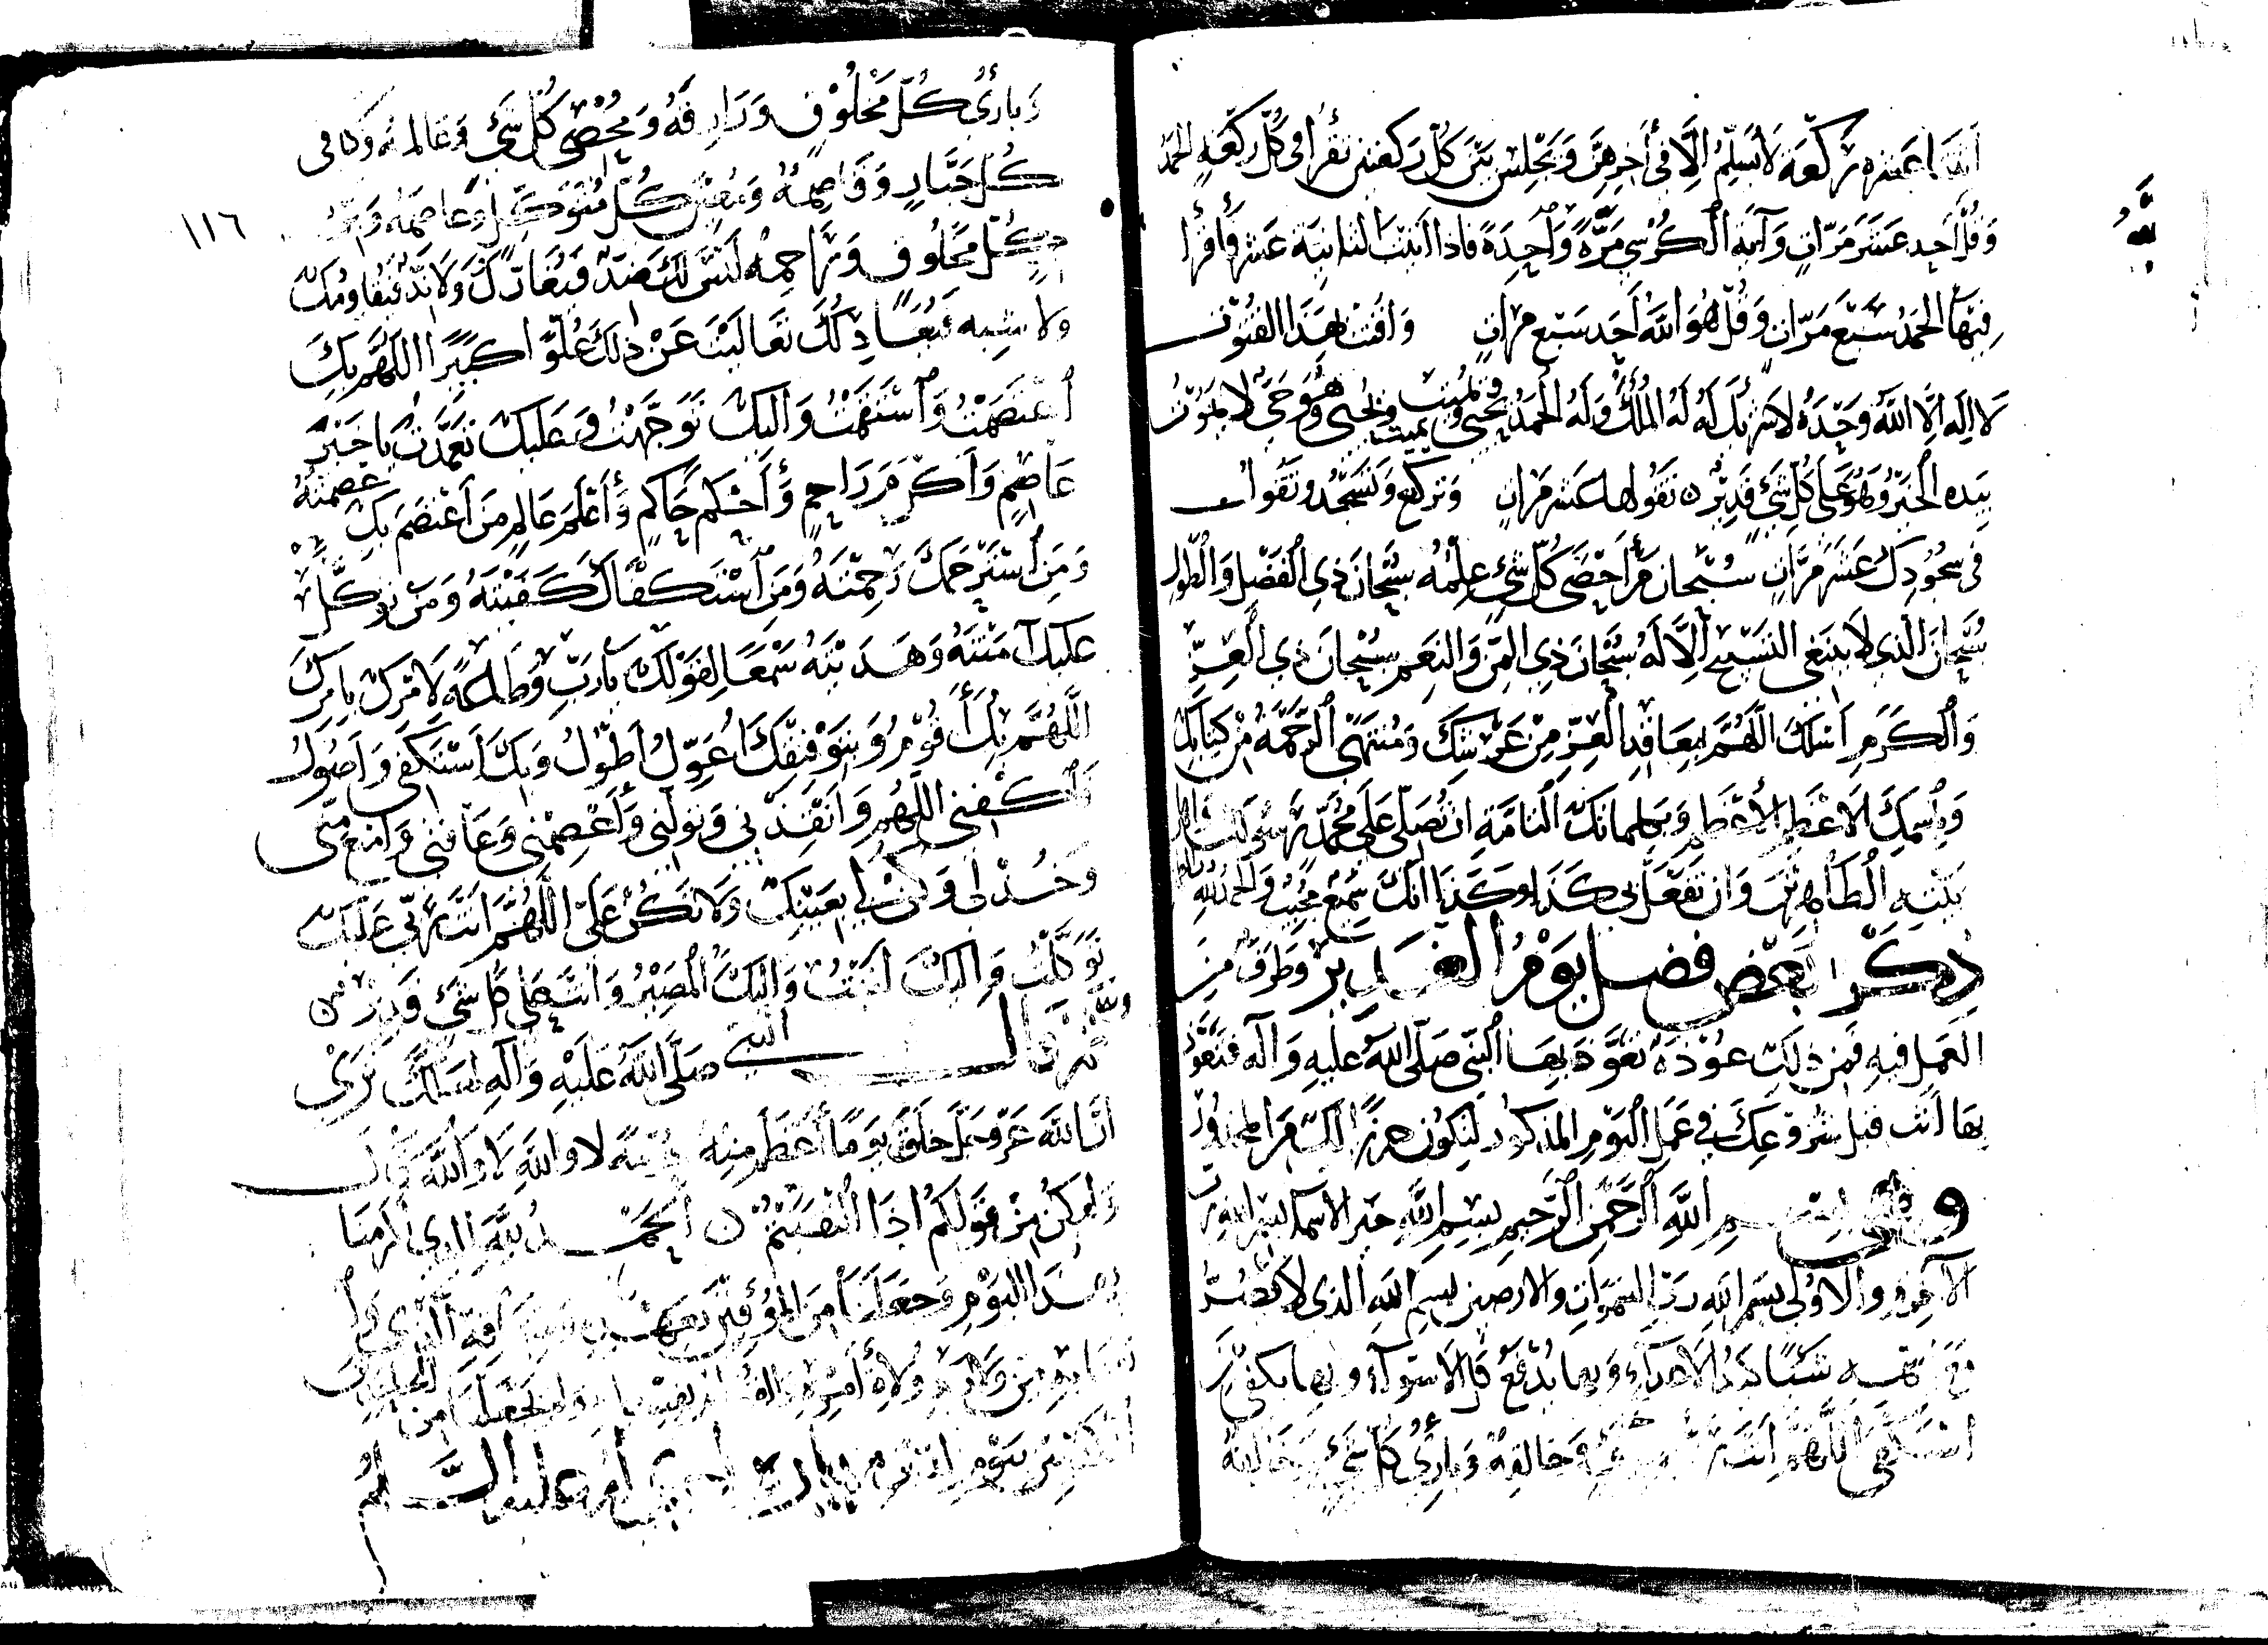 اثنتا عشرة ركعة لا تسلم الا في اخرهن وتجلس بين كل ركعتين تقرا في كل ركعة الحمد
وقل احد عشر مرات وآية الكرسي مرة واحدة فاذا اتيت الثانية عشر فأقرأ
فيها الحمد سبع مرات وقل هو الله احد سبع مرات واقنت بهذا القنوت
لا اله الا الله وحده لا شريك له له الملك وله الحمد يحيي ويميت ويميت ويحيي وهو حي لا يموت
بيده الخير وهو على كل شئ قدير ه تقولها عشر مرات وتركع وتسجد وتقول
في سجودك عشر مرات سبحان من أحصى كل شئ علمه سبحان ذي الفضل والطول
سبحان الذي لا ينبغي التسبيح الا له سبحان ذي المن والنعم سبحان ذي العز
والكرم اسلك اللهم بمعاقد العز من عرشك ومنتهى الرحمة من كتابك
وباسمك الاعظم الأعظم وبكلماتك التامة ان تصلي على محمد رسولك واهل
بيته الطاهرين وان تفعل بي كذا وكذا انك سميع مجيب والحمد لله
ذكر بعض فضل يوم الغدير وطرف من
العمل فيه فمن ذلك عوذة تعوذ بها النبي صلى الله عليه وآله فتعوذ
بها انت قبل شروعك في عمل اليوم المذكور ليكون حرزا لك من المحذور
وهي بسم الله الرحمن الرحيم بسم الله خير الاسماء بسم الله رب
الآخرة والاولى بسم الله رب السموات والارضين بسم الله الذي لا تضر
مع اسمه شئا كيد الاعداء وبها تدفع كل الاسوآء وبها يكفي من
استكفى اللهم انت رب كل شئ وخالقه وبارئ كل شئ
وبارئ كل مخلوق ورازقه ومحصي كل شئ وعالمه وكافي
كل جبار وقاصمه ومعين كل متوكل وعاصمه
كل مخلوق وراحمه ليس لك ضد فيعازك ولا ند فيقاومك
ولا شبه فيعادلك تعاليت عن ذلك علوا كبيرا اللهم بك
اعتصمت واستقمت واليك توجهت وعليك تعمدت يا خير
عاصم واكرم راحم وأحكم حاكم وأعلم عالم من اعتصم بك عصمته
ومن استرحمك رحمته ومن استكفاك كفيته ومن توكل
عليك آمنته وهديته سمعا لقولك يا رب وطاعة لامرك بامرك
اللهم بك أقوم وبتوفيقك اعول اطول وبك استكفي واصول
فاكفني اللهم وانقذني وتولني وأعصمني وعافني وامنع مني
وخذ لي وكن لي بعينك ولا تكن علي اللهم انت ربي عليك
توكلت واليك انبت واليك المصير وانت على كل شئ قدير ه
ثم قال النبي صلى الله عليه وآله لعلك ترى
ان الله عز وجل خلق يوما أعظم منه لا والله لا والله
وليكن من قولكم اذا التقيتم ن الحمد لله الذي اكرمنا
بهذا اليوم وجعلنا من الموفين بعهده
من ولاية ولاة أمره ولم يجعلنا من الجاحدين
المكذبين بيوم الدين عليه السلم
بلغ
١١٦